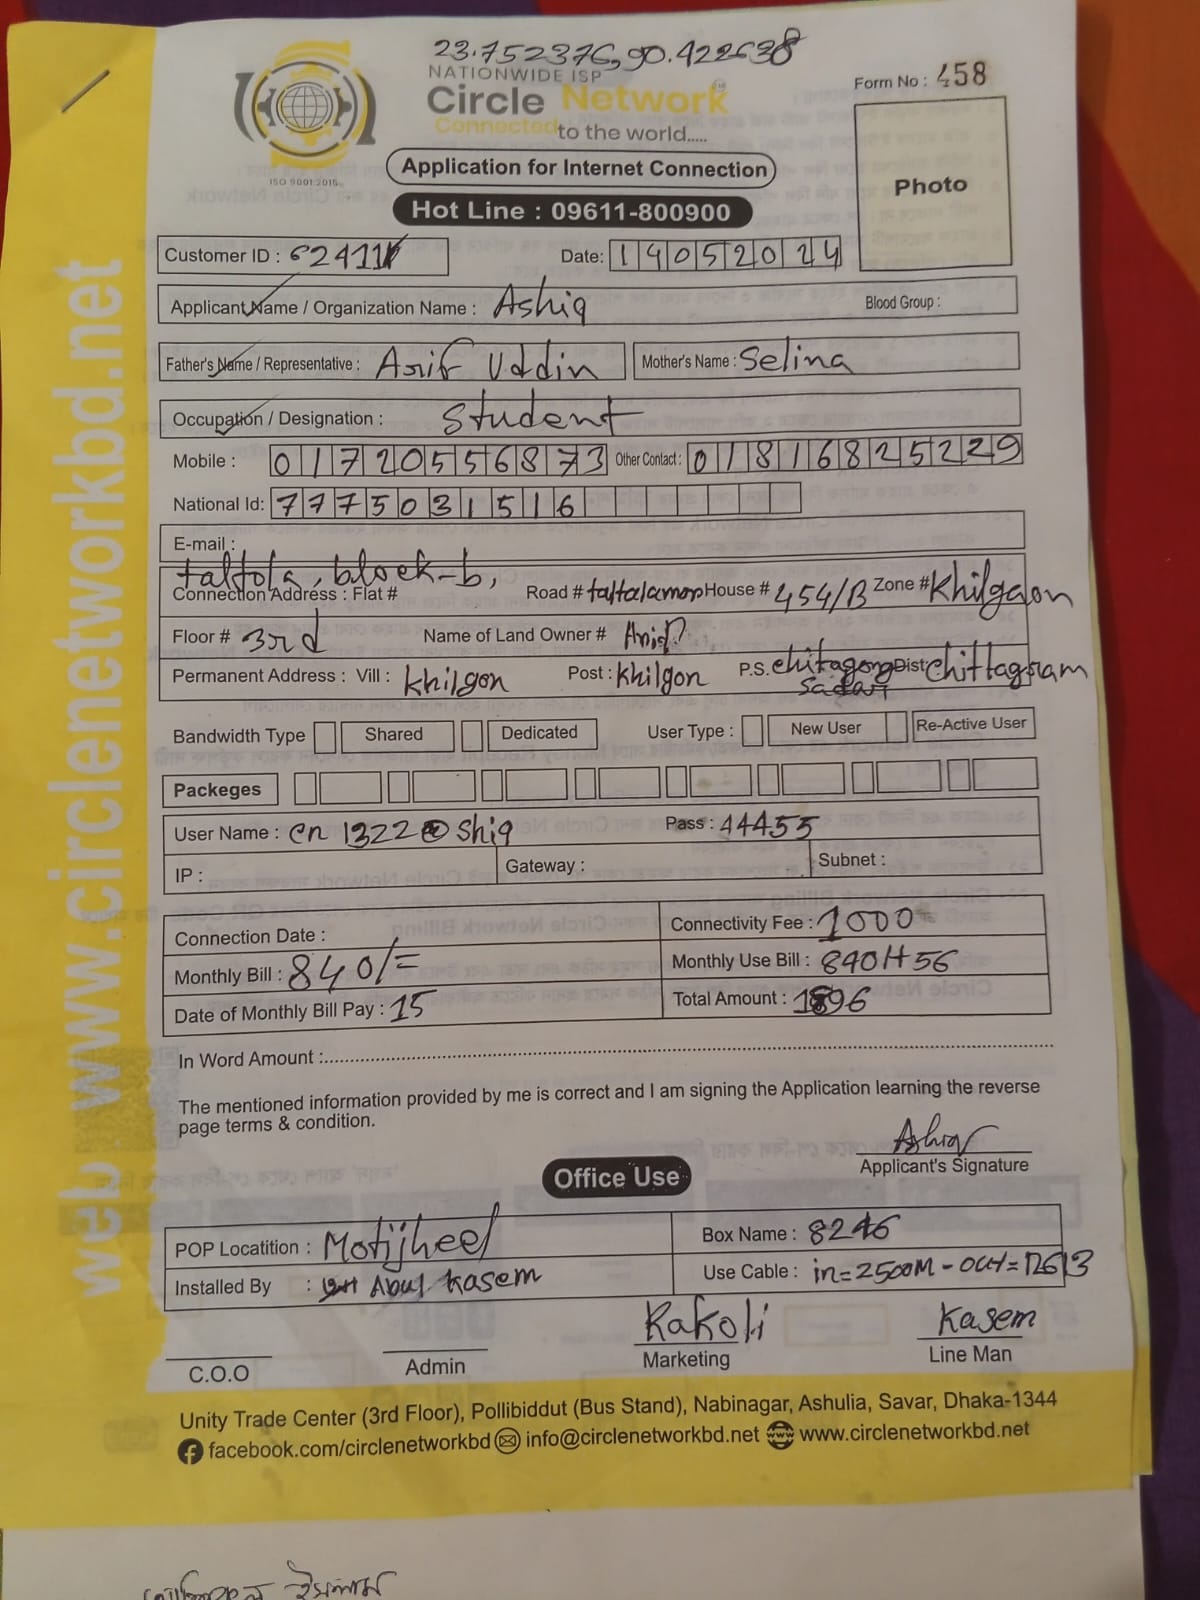 23.752376,90.422638
NATIONWIDE ISP
Circle Network
Connected to the world.....
ISO 9001:2015
Form No : 458
Photo
Application for Internet Connection
Hot Line : 09611-800900
Customer ID : 62411 Date: 14052024
Applicant Name / Organization Name : Ashiq Blood Group :
Father's Name / Representative : Arif Uddin Mother's Name : Selina
Occupation / Designation : Student
Mobile : 01720556873 Other Contact : 01816825229
National Id: 7775031516
E-mail :
taltola, block-b,
Connection Address : Flat # Road # taltalamor House # 454/B Zone # Khilgaon
Floor # 3rd Name of Land Owner #
Permanent Address : Vill : Khilgon Post : Khilgon P.S. chitagong Sadar Dist: chittagram
Bandwidth Type Shared Dedicated User Type : New User Re-Active User
Packeges
User Name : cn 1322@shiq Pass : 44455
IP : Gateway : Subnet :
Connection Date : Connectivity Fee : 1000
Monthly Bill : 840/= Monthly Use Bill : 840+56
Date of Monthly Bill Pay : 15 Total Amount : 1896
In Word Amount :
The mentioned information provided by me is correct and I am signing the Application learning the reverse
page terms & condition.
Ashiq
Applicant's Signature
Office Use
POP Locatition : Motijheel Box Name : 8246
Installed By : Abul Kasem Use Cable : in=2500M - out=
Rakoli Kasem
C.O.O Admin Marketing Line Man
Unity Trade Center (3rd Floor), Pollibiddut (Bus Stand), Nabinagar, Ashulia, Savar, Dhaka-1344
facebook.com/circlenetworkbd info@circlenetworkbd.net www.circlenetworkbd.net
web www.circlenetworkbd.net
ইসলাম